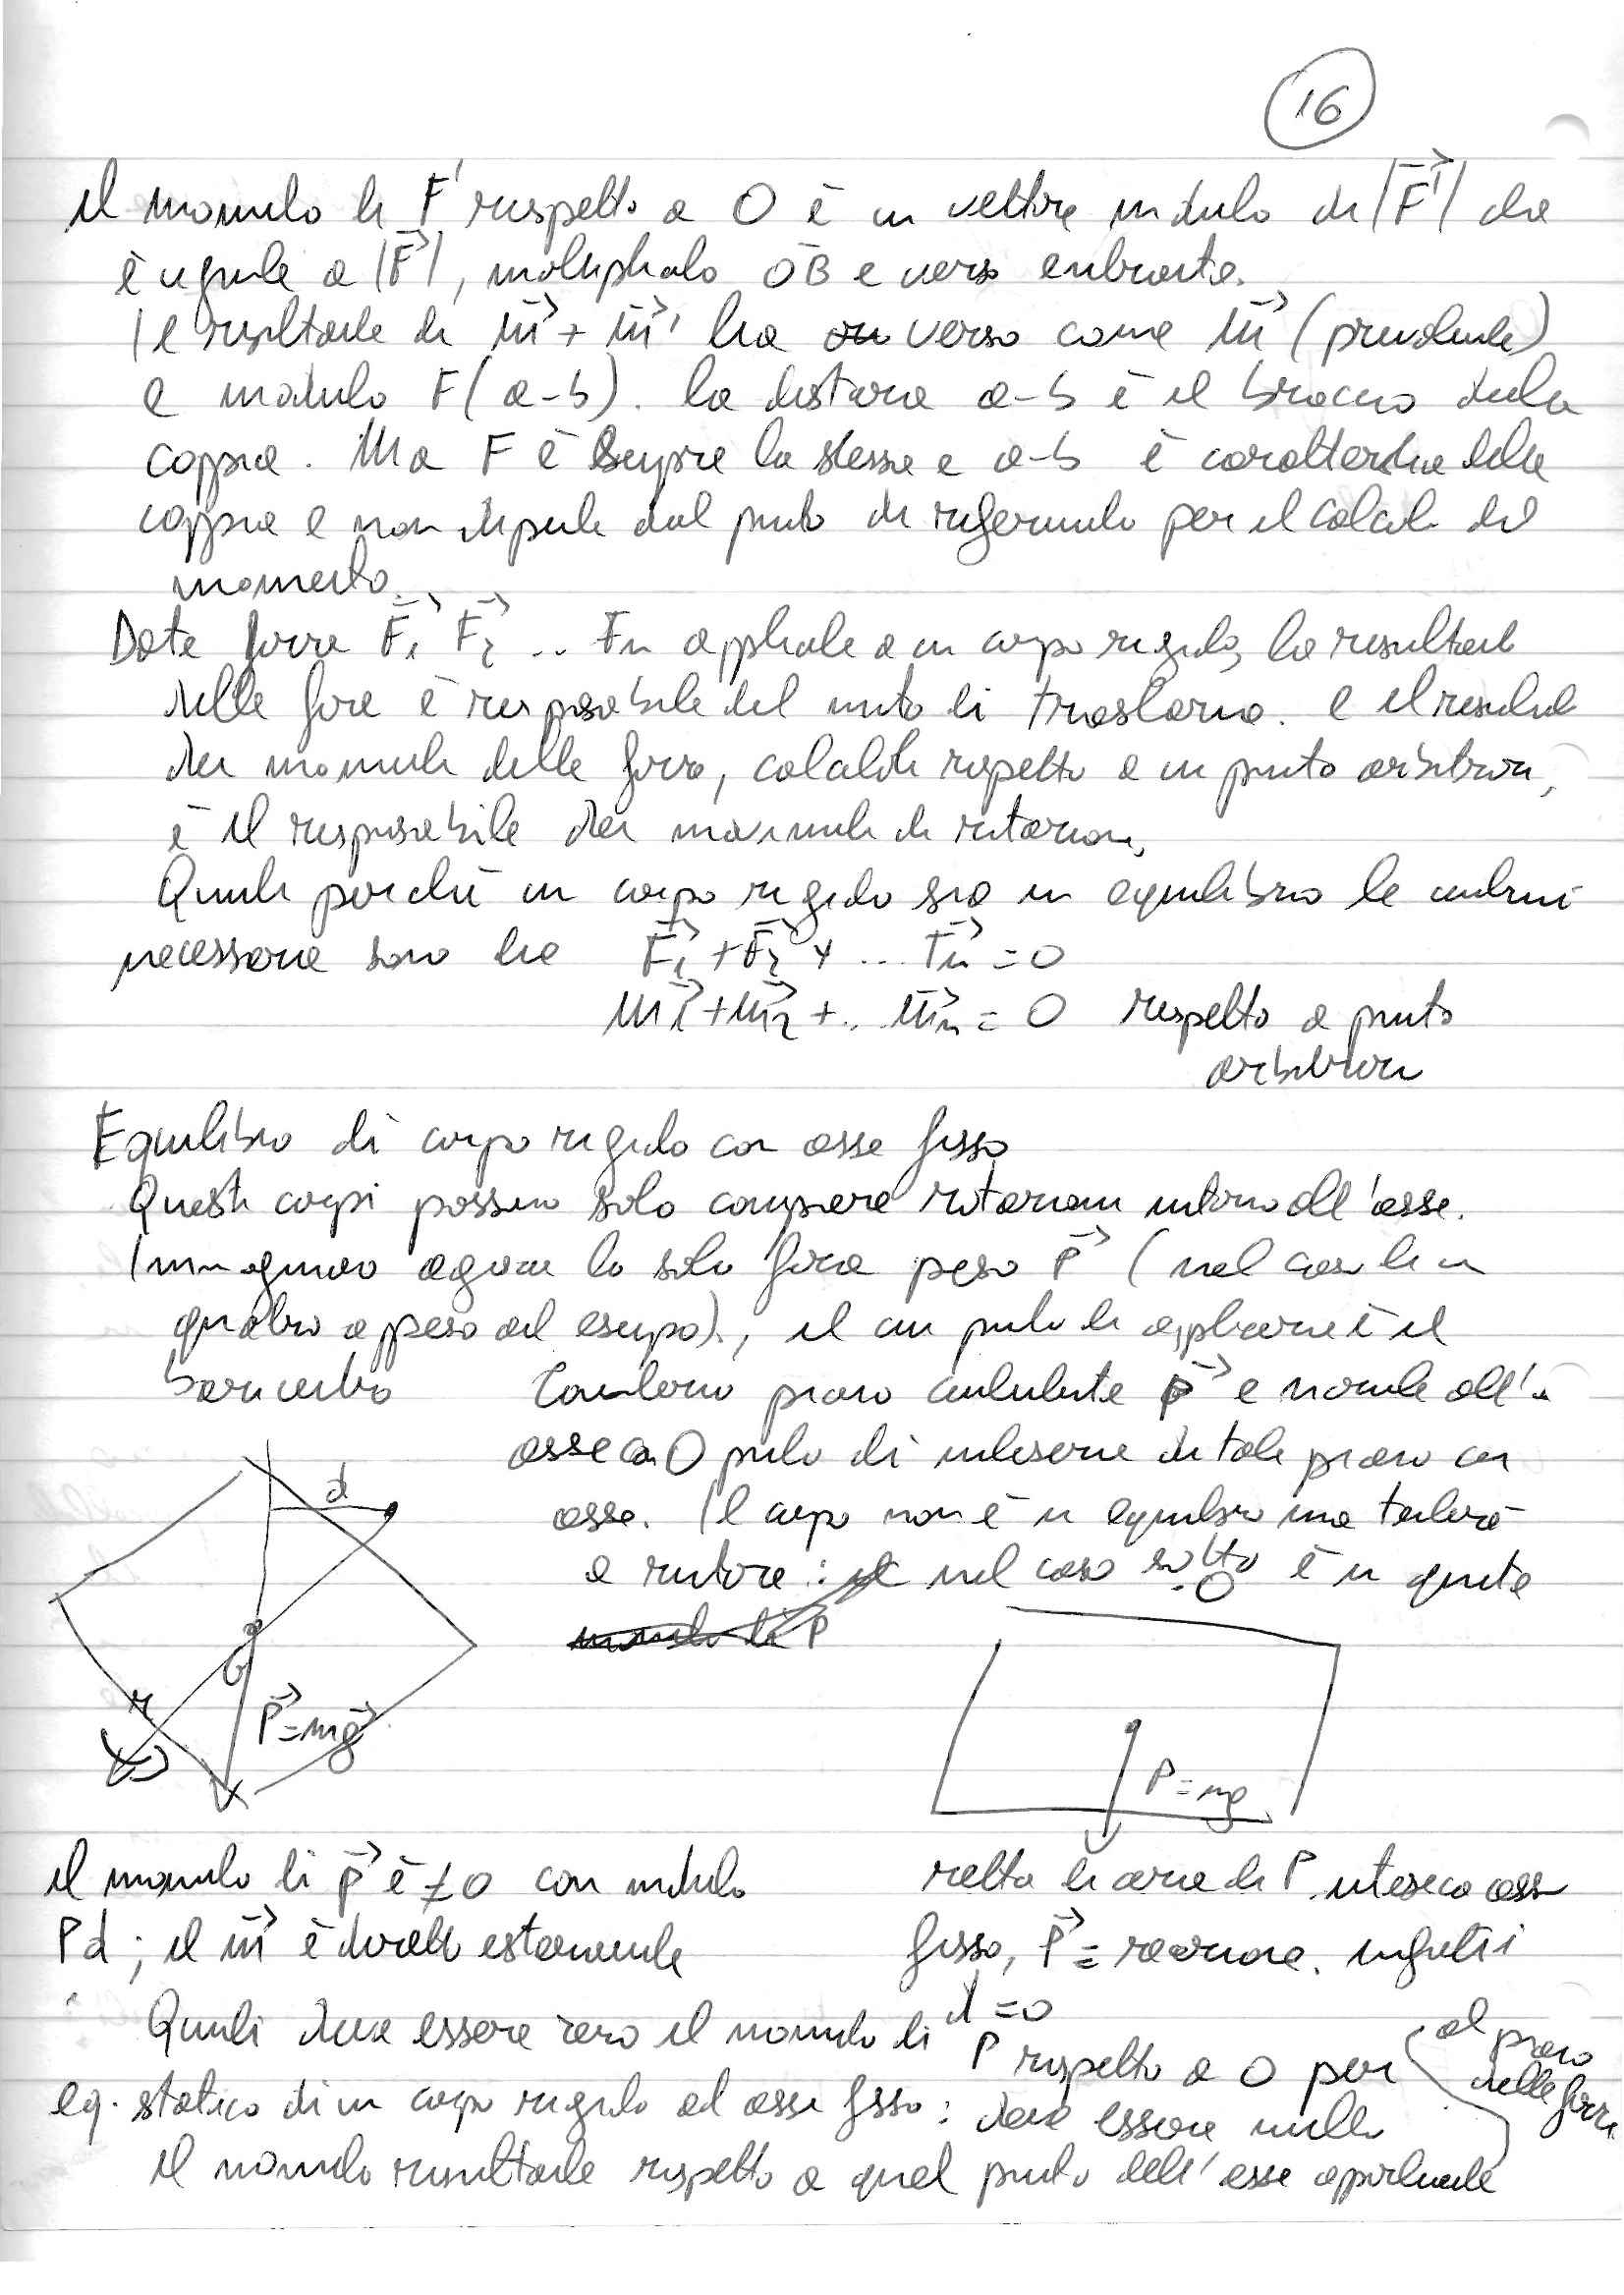 16
il momento di F' rispetto a O è un vettore modulo di |F'| che
è uguale a |F|, moltiplicato OB e verso entrante.
Il risultante di m + m' ha verso come m (prevalente)
e modulo F(a-b). la distanza a-b è il braccio della
coppia. Ma F è sempre la stessa e a-b è caratteristica della
coppia e non dipende dal punto di riferimento per il calcolo del
momento.
Date forze F1 F2 .. Fn applicate a un corpo rigido, la risultante
delle forze è responsabile del moto di traslazione. e il risultante
dei momenti delle forze, calcolati rispetto a un punto arbitrario,
è il responsabile dei movimenti di rotazione,
Quindi perché un corpo rigido sia in equilibrio le condizioni
necessarie sono che F1 + F2 + ... Fn = 0
m1 + m2 + .. mn = 0 rispetto a punto
arbitrario
Equilibrio di corpo rigido con asse fisso
Questi corpi possono solo compiere rotazioni intorno all'asse.
Immaginiamo agire la sola forza peso P (nel caso di un
quadro appeso ad esempio)., il cui punto di applicazione è il
baricentro
Consideriamo piano contenente P e normale all'
asse con O punto di intersezione di tale piano con
asse. Il corpo non è in equilibrio ma tenderà
a ruotare : nel caso sotto è in quiete
momento di P
d
O
G
r
P = mg
P = mg
il momento di P è ≠ 0 con modulo
Pd ; il m è diretto esternamente
retta di azione di P interseca asse
fisso, P = reazione. infatti
d = 0
Quindi deve essere zero il momento di P rispetto a O per
eq. statico di un corpo rigido ad asse fisso : deve essere nullo
il momento risultante rispetto a quel punto dell'asse appartenente
al piano
delle forze